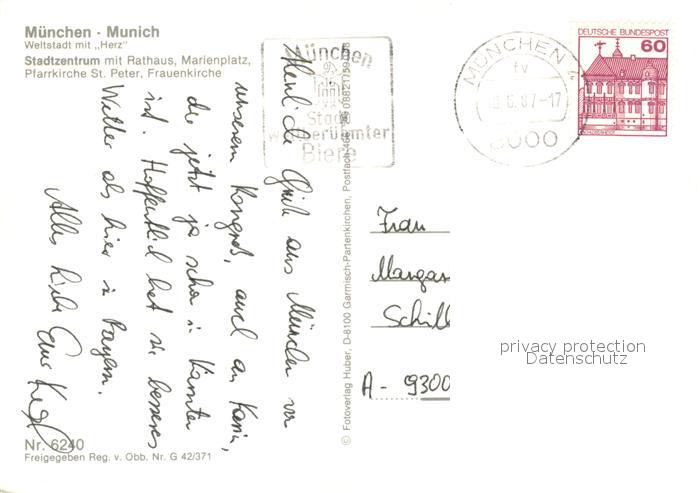 München · Munich
Weltstadt mit „Herz"
Stadtzentrum mit Rathaus, Marienplatz,
Pfarrkirche St. Peter, Frauenkirche
München
Stadt
weltberühmter
Biere
MÜNCHEN 4
fv
6.87-17
8000
DEUTSCHE BUNDESPOST
60
Grüße aus München von
unserem Kongreß, auch an Karin,
die jetzt ja schon in Kärnten
ist. Hoffentlich hat sie besseres
Wetter als hier in Bayern.
Alles Liebe
Frau
Margar
Schill
A - 9300
© Fotoverlag Huber, D-8100 Garmisch-Partenkirchen, Postfach
privacy protection
Datenschutz
Nr. 6240
Freigegeben Reg. v. Obb. Nr. G 42/371